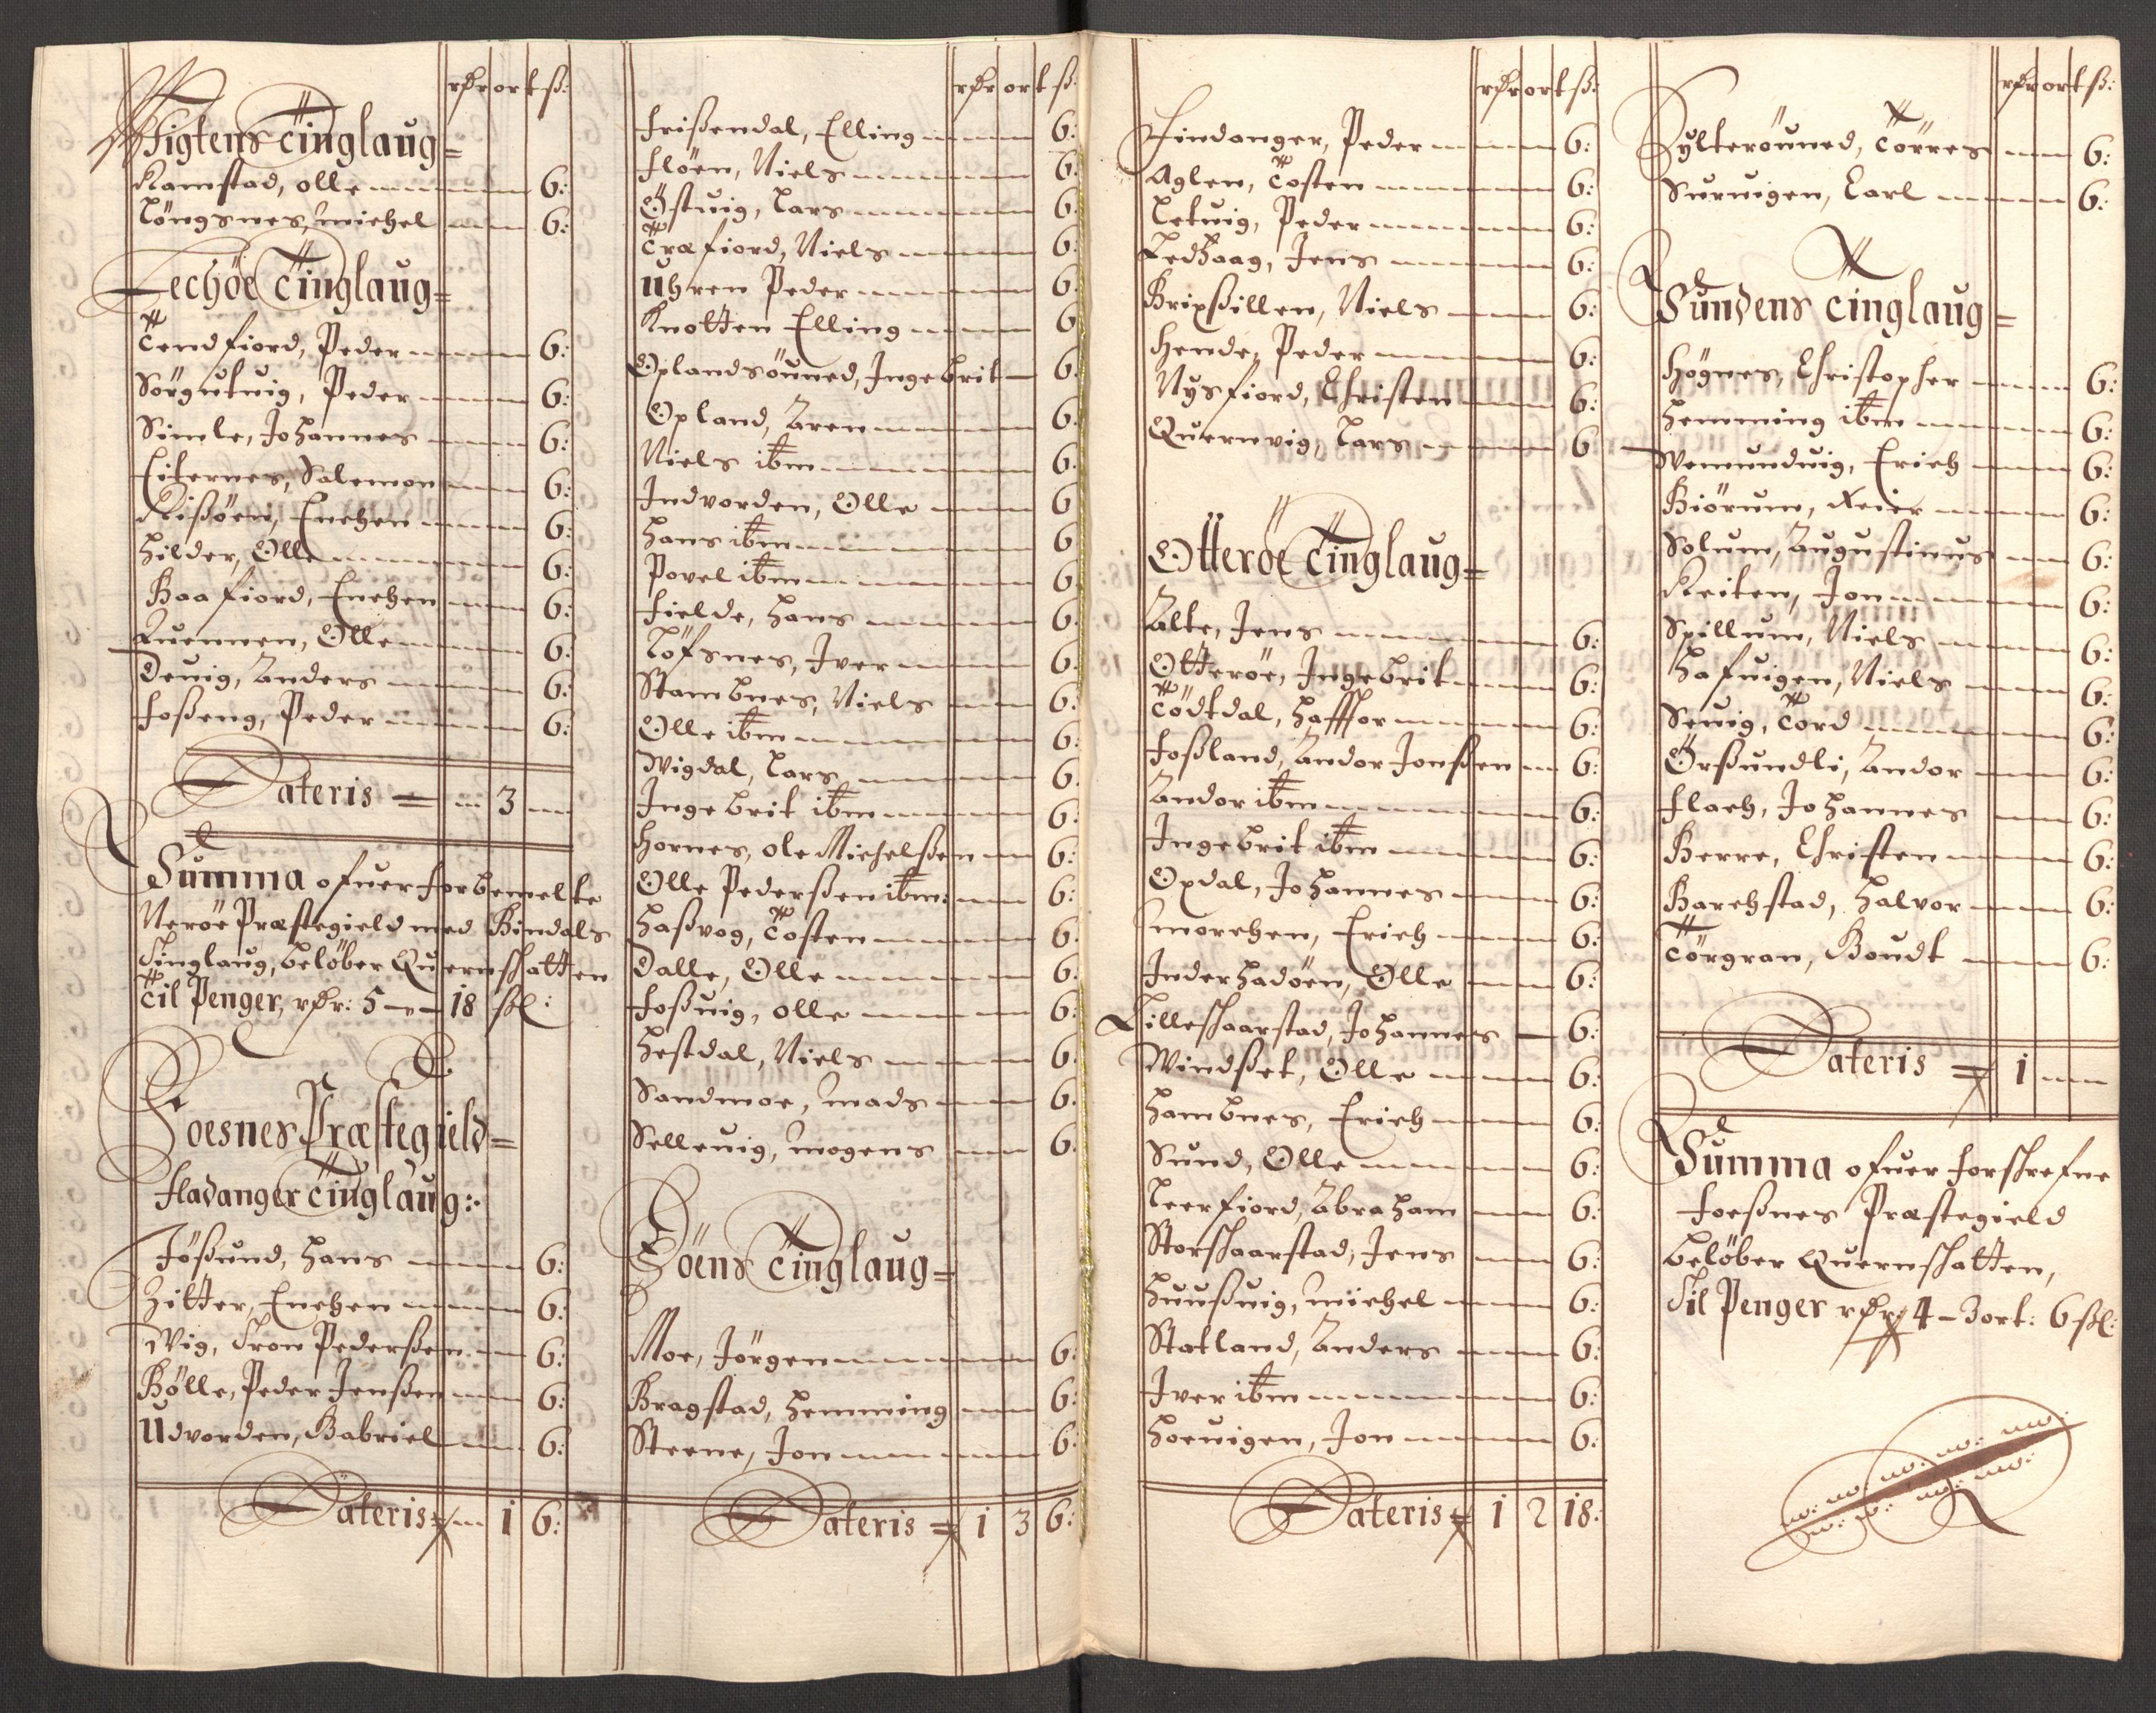 rdr ort ß:
Wigtens Tinglaug=
Ramstad, Olle 6:
Löngsnes, Michel 6:
Lechöe Tinglaug=
Tendfiord, Peder 6:
Sörgutvig, Peder 6:
Simle, Johannes 6:
Eiternes, Salemon 6:
Rißöen, Enchen 6:
Hilder, Olle 6:
Baafiord, Enchen 6:
Quennen, Olle 6:
Devig, Anders 6:
Foßeng, Peder 6:
Lateris = 3
Summa ofuer forbemelte
Neröe Præstegield med Bindals
Tinglaug, belöber Quernschatten
Til Penger, rdr: 5 - - 18 ßl:
Foesnes Præstegield=
Fladanger Tinglaug:
Jößund, Hans 6:
Zitter, Enchen 6:
Wig, Tron Pederßen 6:
Bölle, Peder Jenßen 6:
Udvorden, Gabriel 6:
Lateris= 1 6:
rdr ort ß:
Frißendal, Elling 6:
Flöen, Niels 6:
Östvig, Lars 6:
Træfiord, Niels 6:
Uhren Peder 6:
Knotten Elling 6
Oplandsöuned, Ingebrit 6:
Opland, Aren 6:
Niels ibm 6:
Indvorden, Olle 6
Hans ibm 6
Povel ibm 6
Fielde, Hans 6
Löfsnes, Iver 6:
Stambnes, Niels 6:
Olle ibm 6:
Wigdal, Lars 6:
Ingebrit ibm 6:
Hornes, Ole Michelßen 6:
Olle Pederßen ibm: 6:
Haßvog, Tosten 6:
Dalle, Olle 6:
Foßvig, Olle 6:
Hestdal, Niels 6:
Sandmoe, Mads 6:
Sellevig, Mogens 6:
Föens Tinglaug=
Moe, Jörgen 6:
Bragstad, Hemming 6:
Steene, Jon 6:
Lateris = 1 3 6:
rdr ort ß:
Findanger, Peder 6:
Aglen, Tosten 6:
Letvig, Peder 6:
Ledhaag, Jens 6:
Brixstillen, Niels 6:
Hende, Peder 6:
Nysfiord, Christen 6:
Quernvig, Lars 6
Otteröe Tinglaug=
Alte, Jens 6:
Otteröe, Ingebrit 6:
Tödtdal, Haffor 6:
Foßland, Andor Jonßen 6:
Andor ibm 6:
Ingebrit ibm 6:
Opdal, Johannes 6:
Smorchen, Erich 6:
Inderhadöen, Olle 6:
Lilleschaarstad, Johannes 6:
Windset, Olle 6:
Hambnes, Erich 6:
Sund, Olle 6:
Leerfiord, Abraham 6:
Storschaarstad, Jens 6:
Huußvig, Michel 6:
Statland, Anders 6:
Iver ibm 6:
Hoevigen, Jon 6:
Lateris= 1 2 18:
rdr ort ß:
Sylteröuned, Törres 6:
Survigen, Carl 6:
Sundens Tinglaug=
Högnes, Christopher 6:
Hemming ibm 6:
Wemundvig, Erich 6:
Biörum, Reier 6:
Solum, Augustinus 6:
Reiten, Jon 6:
Spillum, Niels 6:
Hafvigen, Niels 6:
Sevig, Tord 6:
Örßundli, Andor 6:
Flach, Johannes 6:
Berre, Christen 6:
Barchstad, Halvor 6:
Törgran, Boudt 6:
Lateris = 1
Summa ofuer forschrefne
Foeßnes Præstegield
belöber Quernschatten,
Til Penger rdr: 4 - 3 ort: 6 ßl: